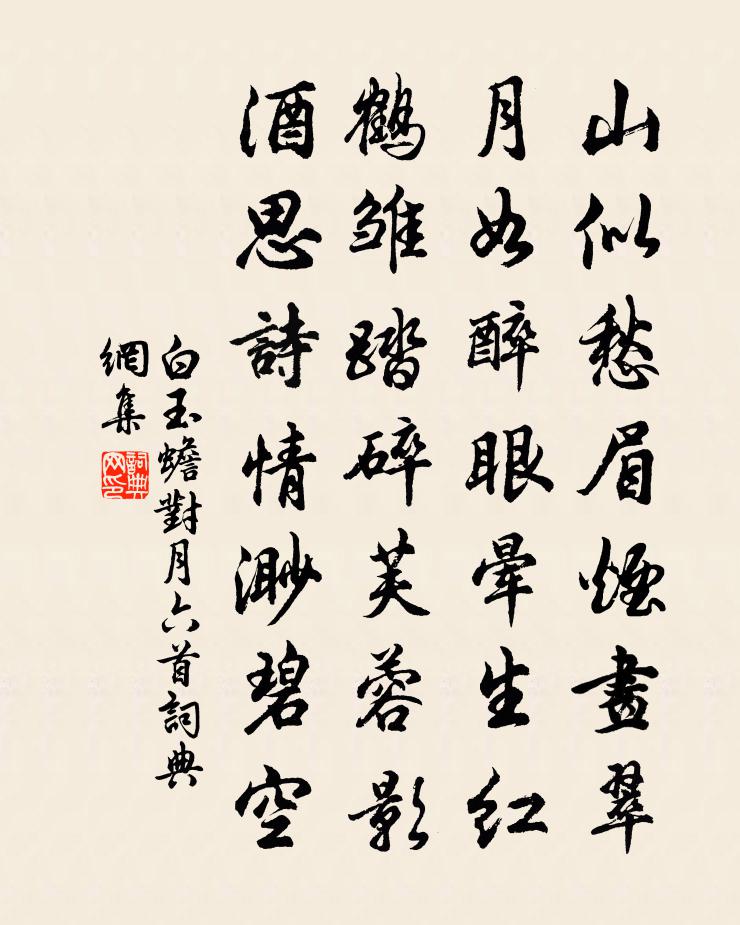 山似愁眉煙畫翠
月如醉眼暈生紅
鶴雏踏碎芙蓉影
酒思詩情渺碧空
白玉蟾對月六首詞典
網集
詞典网印